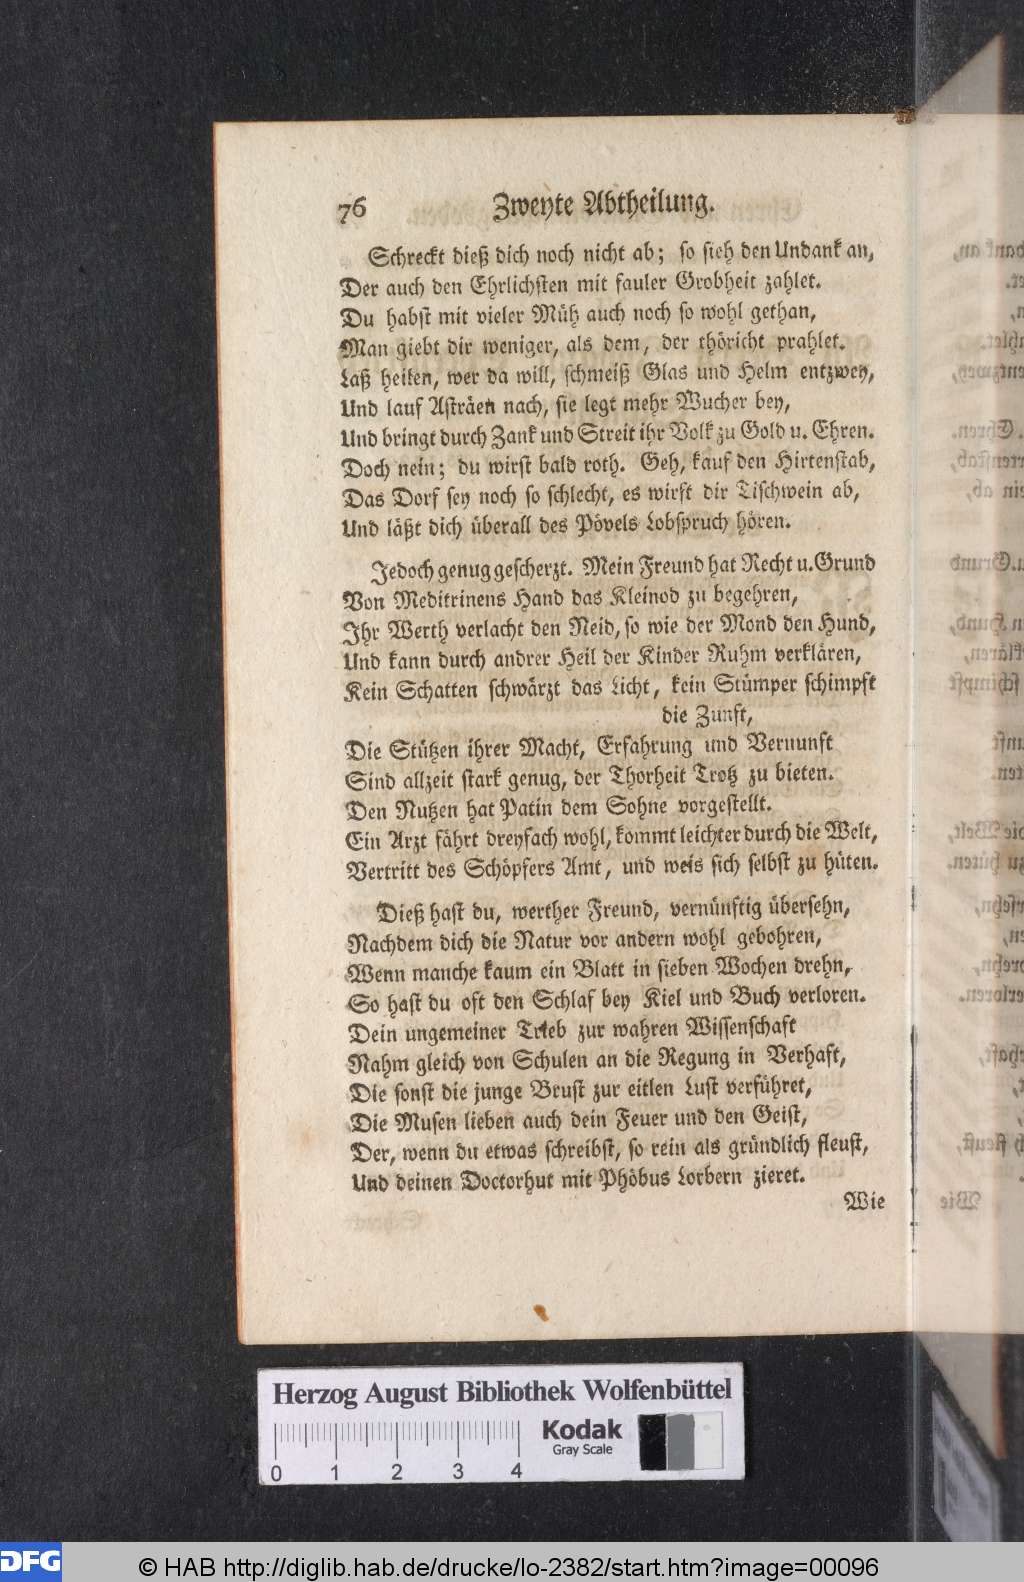 76 Zweyte Abtheilung.
Schreckt dieß dich noch nicht ab; so sieh den Undank an,
Der auch den Ehrlichsten mit fauler Grobheit zahlet.
Du habst mit vieler Müh auch noch so wohl gethan,
Man giebt dir weniger, als dem, der thöricht prahlet.
Laß heilen, wer da will, schmeiß Glas und Helm entzwey,
Und lauf Asträen nach, sie legt mehr Wucher bey,
Und bringt durch Zank und Streit ihr Volk zu Gold u. Ehren.
Doch nein; du wirst bald roth. Geh, kauf den Hirtenstab,
Das Dorf sey noch so schlecht, es wirft dir Tischwein ab,
Und läßt dich überall des Pövels Lobspruch hören.
Jedoch genug gescherzt. Mein Freund hat Recht u. Grund
Von Meditrinens Hand das Kleinod zu begehren,
Ihr Werth verlacht den Neid, so wie der Mond den Hund,
Und kann durch andrer Heil der Kinder Ruhm verklären,
Kein Schatten schwärzt das Licht, kein Stümper schimpft
die Zunft,
Die Stützen ihrer Macht, Erfahrung und Vernunft
Sind allzeit stark genug, der Thorheit Trotz zu bieten.
Den Nutzen hat Patin dem Sohne vorgestellt.
Ein Arzt fährt dreyfach wohl, kommt leichter durch die Welt,
Vertritt des Schöpfers Amt, und weis sich selbst zu hüten.
Dieß hast du, werther Freund, vernünftig übersehn,
Nachdem dich die Natur vor andern wohl gebohren,
Wenn manche kaum ein Blatt in sieben Wochen drehn,
So hast du oft den Schlaf bey Kiel und Buch verloren.
Dein ungemeiner Trieb zur wahren Wissenschaft
Nahm gleich von Schulen an die Regung in Verhaft,
Die sonst die junge Brust zur eitlen Lust verführet,
Die Musen lieben auch dein Feuer und den Geist,
Der, wenn du etwas schreibst, so rein als gründlich fleust,
Und deinen Doctorhut mit Phöbus Lorbern zieret.
Wie
Herzog August Bibliothek Wolfenbüttel
Kodak
Gray Scale
0 1 2 3 4
DFG
© HAB http://diglib.hab.de/drucke/lo-2382/start.htm?image=00096